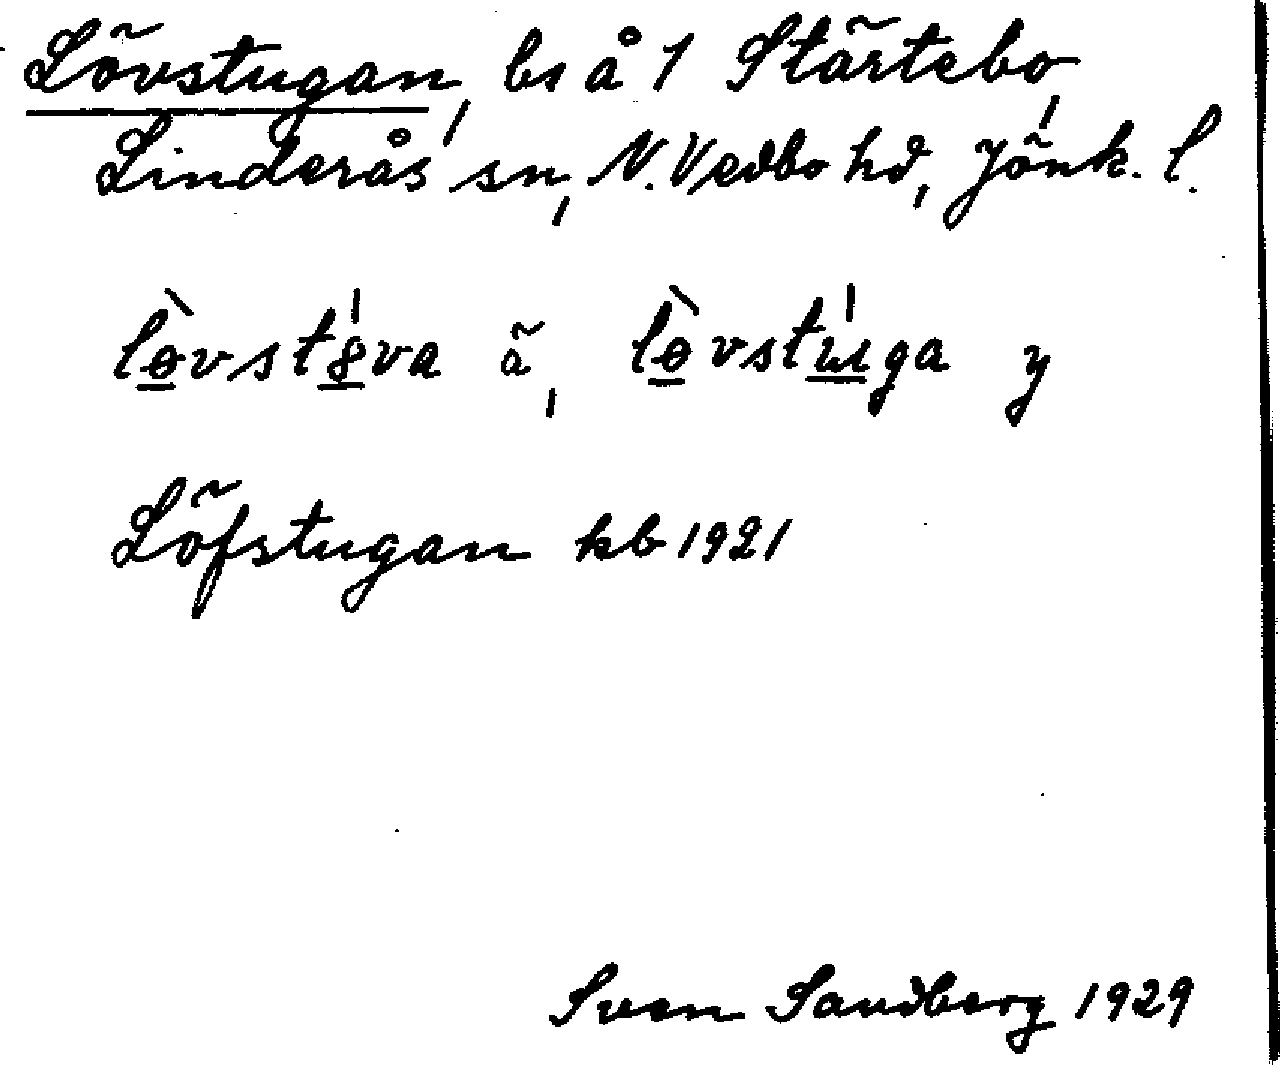 Lövstugan, bs å 1 Stärtebo,
Linderås sn, N. Vedbo hd, Jönk. l.
lòvst8́va ä, lòvstúga y
Löfstugan kb 1921
Sven Sandberg 1929